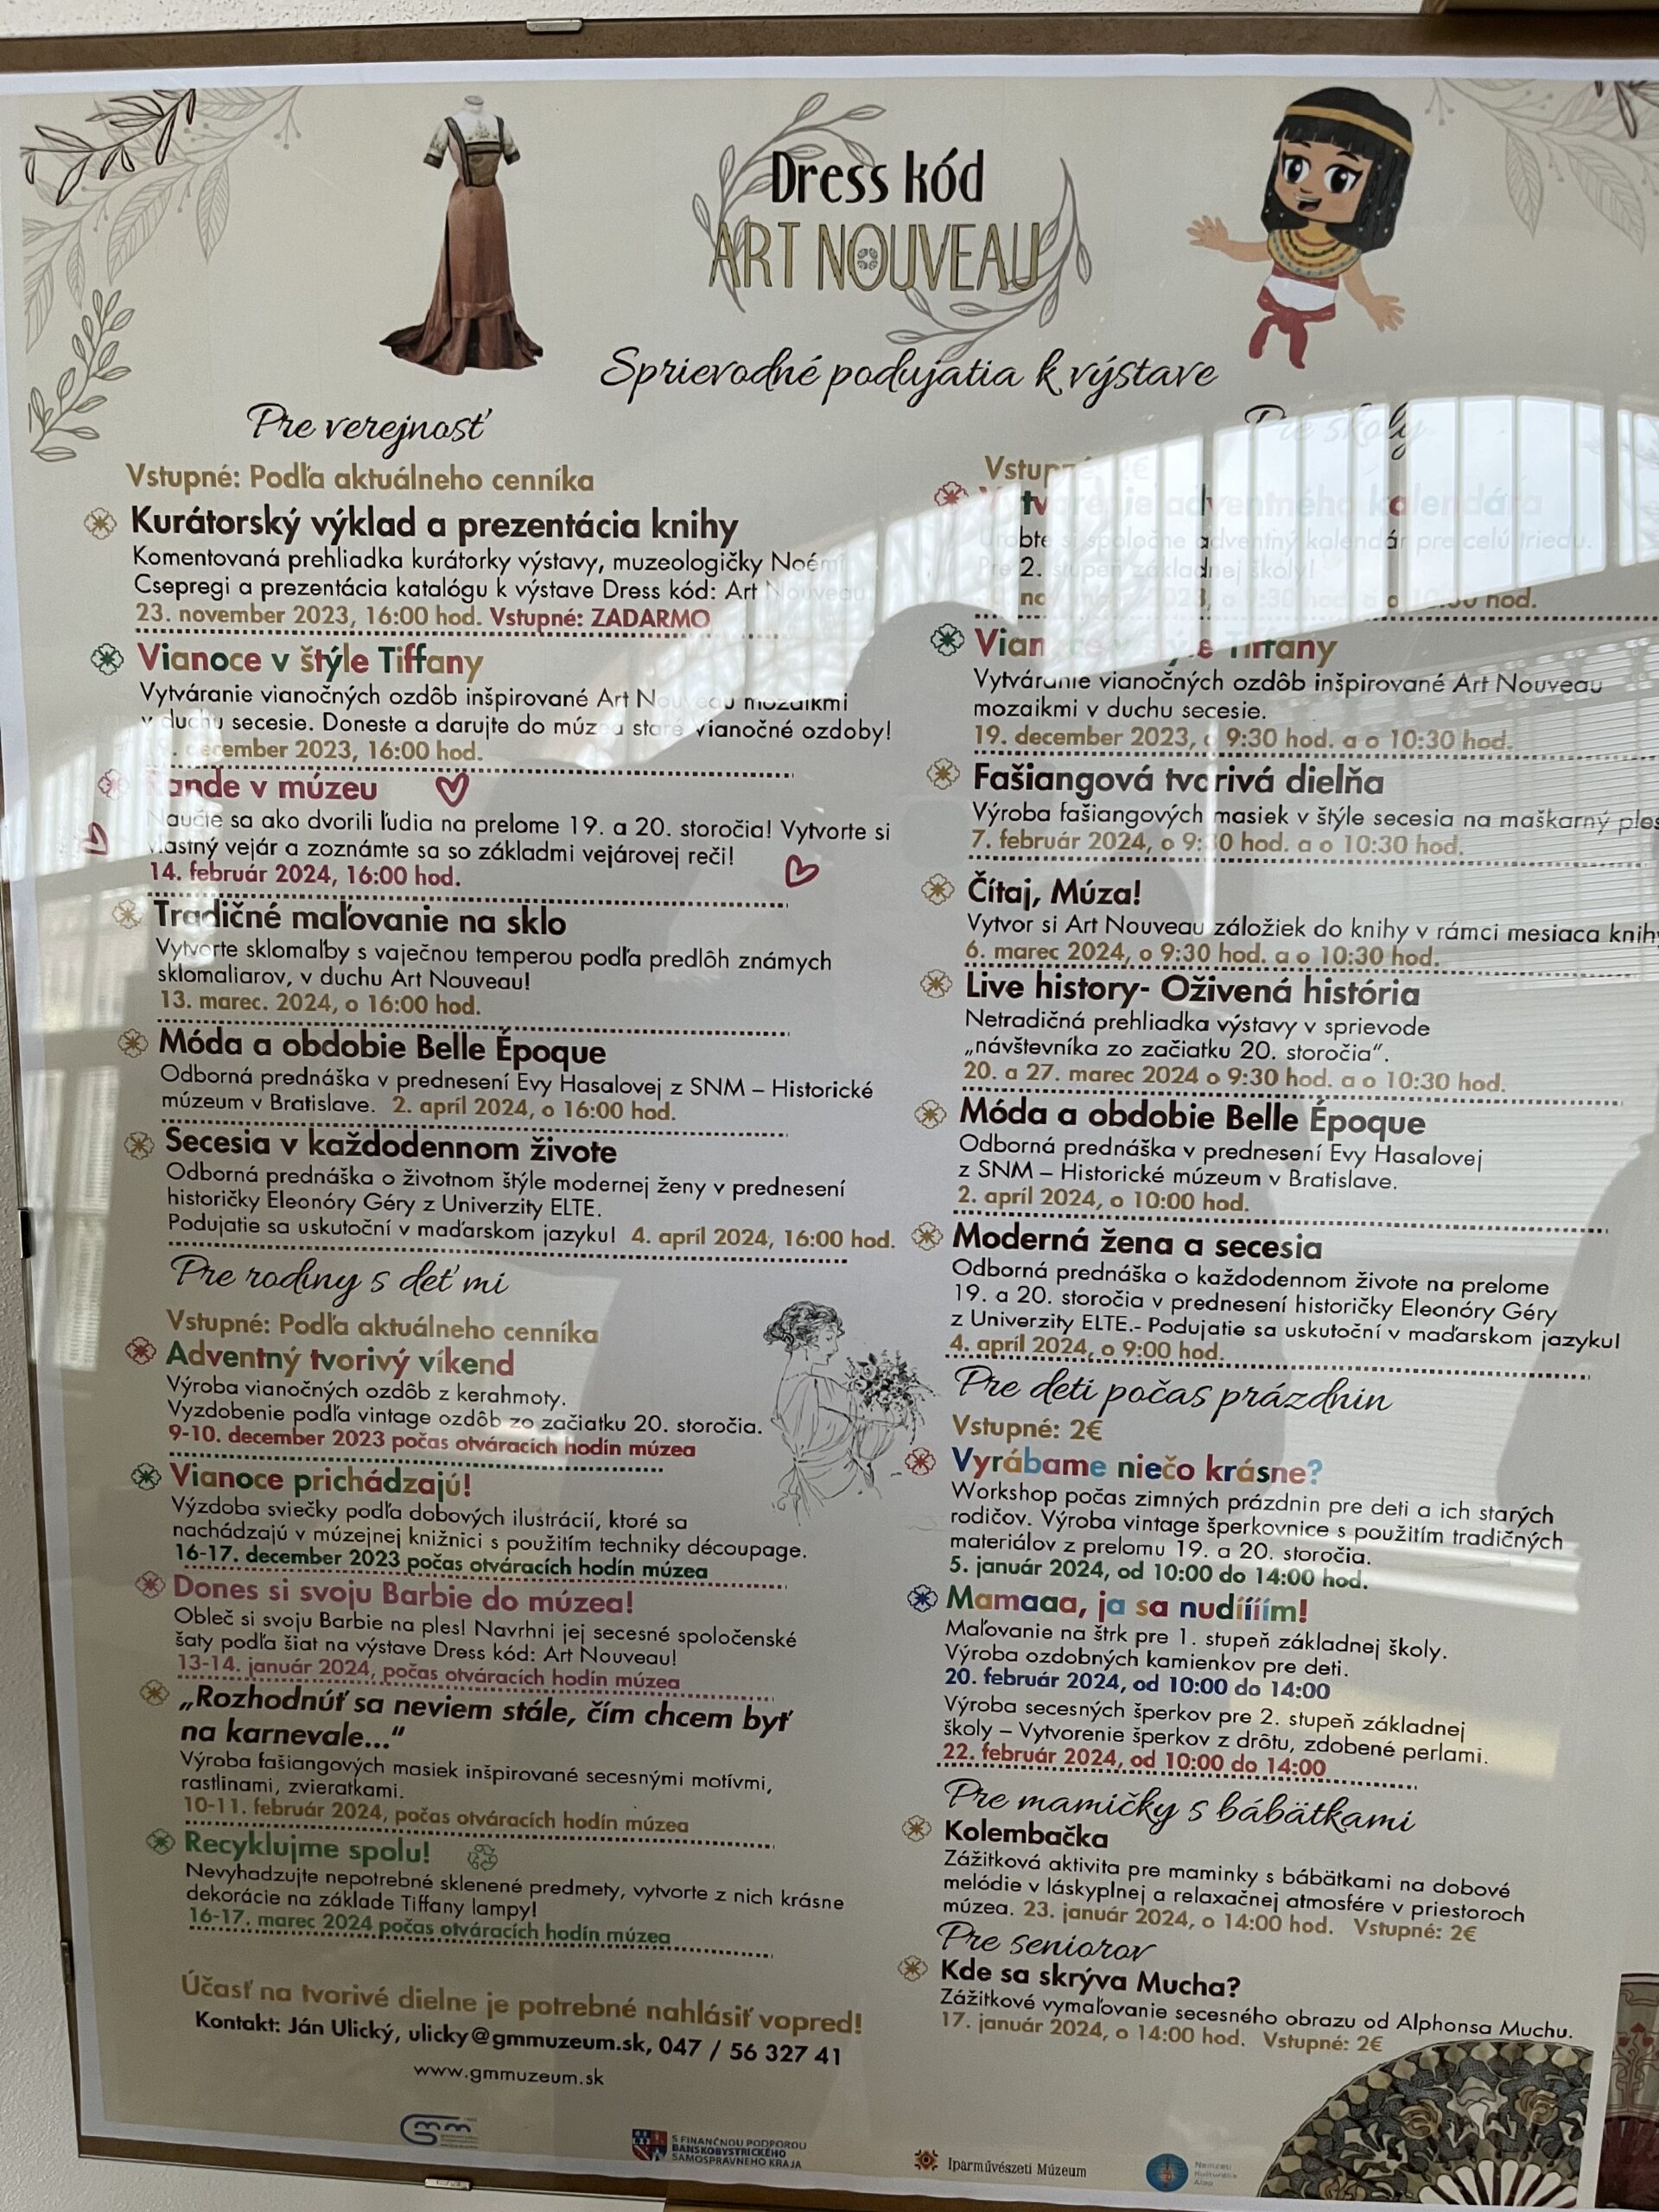 Dress kód
ART NOUVEAU
Sprievodné podujatia k výstave
Pre verejnosť
Vstupné: Podľa aktuálneho cenníka
Kurátorský výklad a prezentácia knihy
Komentovaná prehliadka kurátorky výstavy, muzeologičky Noémi
Csepregi a prezentácia katalógu k výstave Dress kód: Art Nouveau
23. november 2023, 16:00 hod. Vstupné: ZADARMO
Vianoce v štýle Tiffany
Vytváranie vianočných ozdôb inšpirované Art Nouveau mozaikmi
v duchu secesie. Doneste a darujte do múzea staré vianočné ozdoby!
december 2023, 16:00 hod.
Rande v múzeu
Naučte sa ako dvorili ľudia na prelome 19. a 20. storočia! Vytvorte si
vlastný vejár a zoznámte sa so základmi vejárovej reči!
14. február 2024, 16:00 hod.
Tradičné maľovanie na sklo
Vytvorte sklomaľby s vaječnou temperou podľa predlôh známych
sklomaliarov, v duchu Art Nouveau!
13. marec. 2024, o 16:00 hod.
Móda a obdobie Belle Époque
Odborná prednáška v prednesení Evy Hasalovej z SNM – Historické
múzeum v Bratislave. 2. apríl 2024, o 16:00 hod.
Secesia v každodennom živote
Odborná prednáška o životnom štýle modernej ženy v prednesení
historičky Eleonóry Géry z Univerzity ELTE.
Podujatie sa uskutoční v maďarskom jazyku! 4. apríl 2024, 16:00 hod.
Pre rodiny s deťmi
Vstupné: Podľa aktuálneho cenníka
Adventný tvorivý víkend
Výroba vianočných ozdôb z kerahmoty.
Vyzdobenie podľa vintage ozdôb zo začiatku 20. storočia.
9-10. december 2023 počas otváracích hodín múzea
Vianoce prichádzajú!
Výzdoba sviečky podľa dobových ilustrácií, ktoré sa
nachádzajú v múzejnej knižnici s použitím techniky découpage.
16-17. december 2023 počas otváracích hodín múzea
Dones si svoju Barbie do múzea!
Obleč si svoju Barbie na ples! Navrhni jej secesné spoločenské
šaty podľa šiat na výstave Dress kód: Art Nouveau!
13-14. január 2024, počas otváracích hodín múzea
„Rozhodnúť sa neviem stále, čím chcem byť
na karnevale...“
Výroba fašiangových masiek inšpirované secesnými motívmi,
rastlinami, zvieratkami.
10-11. február 2024, počas otváracích hodín múzea
Recyklujme spolu!
Nevyhadzujte nepotrebné sklenené predmety, vytvorte z nich krásne
dekorácie na základe Tiffany lampy!
16-17. marec 2024 počas otváracích hodín múzea
Účasť na tvorivé dielne je potrebné nahlásiť vopred!
Kontakt: Ján Ulický, ulicky@gmmuzeum.sk, 047 / 56 327 41
www.gmmuzeum.sk
Pre školy
Vstupné: 2€
Vytvorenie adventného kalendára
Urobte si spoločne adventný kalendár pre celú triedu.
Pre 2. stupeň základnej školy!
hod.
Vianoce v štýle Tiffany
Vytváranie vianočných ozdôb inšpirované Art Nouveau
mozaikmi v duchu secesie.
19. december 2023, o 9:30 hod. a o 10:30 hod.
Fašiangová tvorivá dielňa
Výroba fašiangových masiek v štýle secesia na maškarný ples
7. február 2024, o 9:30 hod. a o 10:30 hod.
Čítaj, Múza!
Vytvor si Art Nouveau záložiek do knihy v rámci mesiaca knihy
6. marec 2024, o 9:30 hod. a o 10:30 hod.
Live history- Oživená história
Netradičná prehliadka výstavy v sprievode
„návštevníka zo začiatku 20. storočia“.
20. a 27. marec 2024 o 9:30 hod. a o 10:30 hod.
Móda a obdobie Belle Époque
Odborná prednáška v prednesení Evy Hasalovej
z SNM – Historické múzeum v Bratislave.
2. apríl 2024, o 10:00 hod.
Moderná žena a secesia
Odborná prednáška o každodennom živote na prelome
19. a 20. storočia v prednesení historičky Eleonóry Géry
z Univerzity ELTE.- Podujatie sa uskutoční v maďarskom jazyku!
4. apríl 2024, o 9:00 hod.
Pre deti počas prázdnin
Vstupné: 2€
Vyrábame niečo krásne?
Workshop počas zimných prázdnin pre deti a ich starých
rodičov. Výroba vintage šperkovnice s použitím tradičných
materiálov z prelomu 19. a 20. storočia.
5. január 2024, od 10:00 do 14:00 hod.
Mamaaa, ja sa nudíííím!
Maľovanie na štrk pre 1. stupeň základnej školy.
Výroba ozdobných kamienkov pre deti.
20. február 2024, od 10:00 do 14:00
Výroba secesných šperkov pre 2. stupeň základnej
školy – Vytvorenie šperkov z drôtu, zdobené perlami.
22. február 2024, od 10:00 do 14:00
Pre mamičky s bábätkami
Kolembačka
Zážitková aktivita pre maminky s bábätkami na dobové
melódie v láskyplnej a relaxačnej atmosfére v priestoroch
múzea. 23. január 2024, o 14:00 hod. Vstupné: 2€
Pre seniorov
Kde sa skrýva Mucha?
Zážitkové vymaľovanie secesného obrazu od Alphonsa Muchu.
17. január 2024, o 14:00 hod. Vstupné: 2€
GMM
S FINANČNOU PODPOROU
BANSKOBYSTRICKÉHO
SAMOSPRÁVNEHO KRAJA
Iparművészeti Múzeum
Nemzeti
Kulturális
Alap